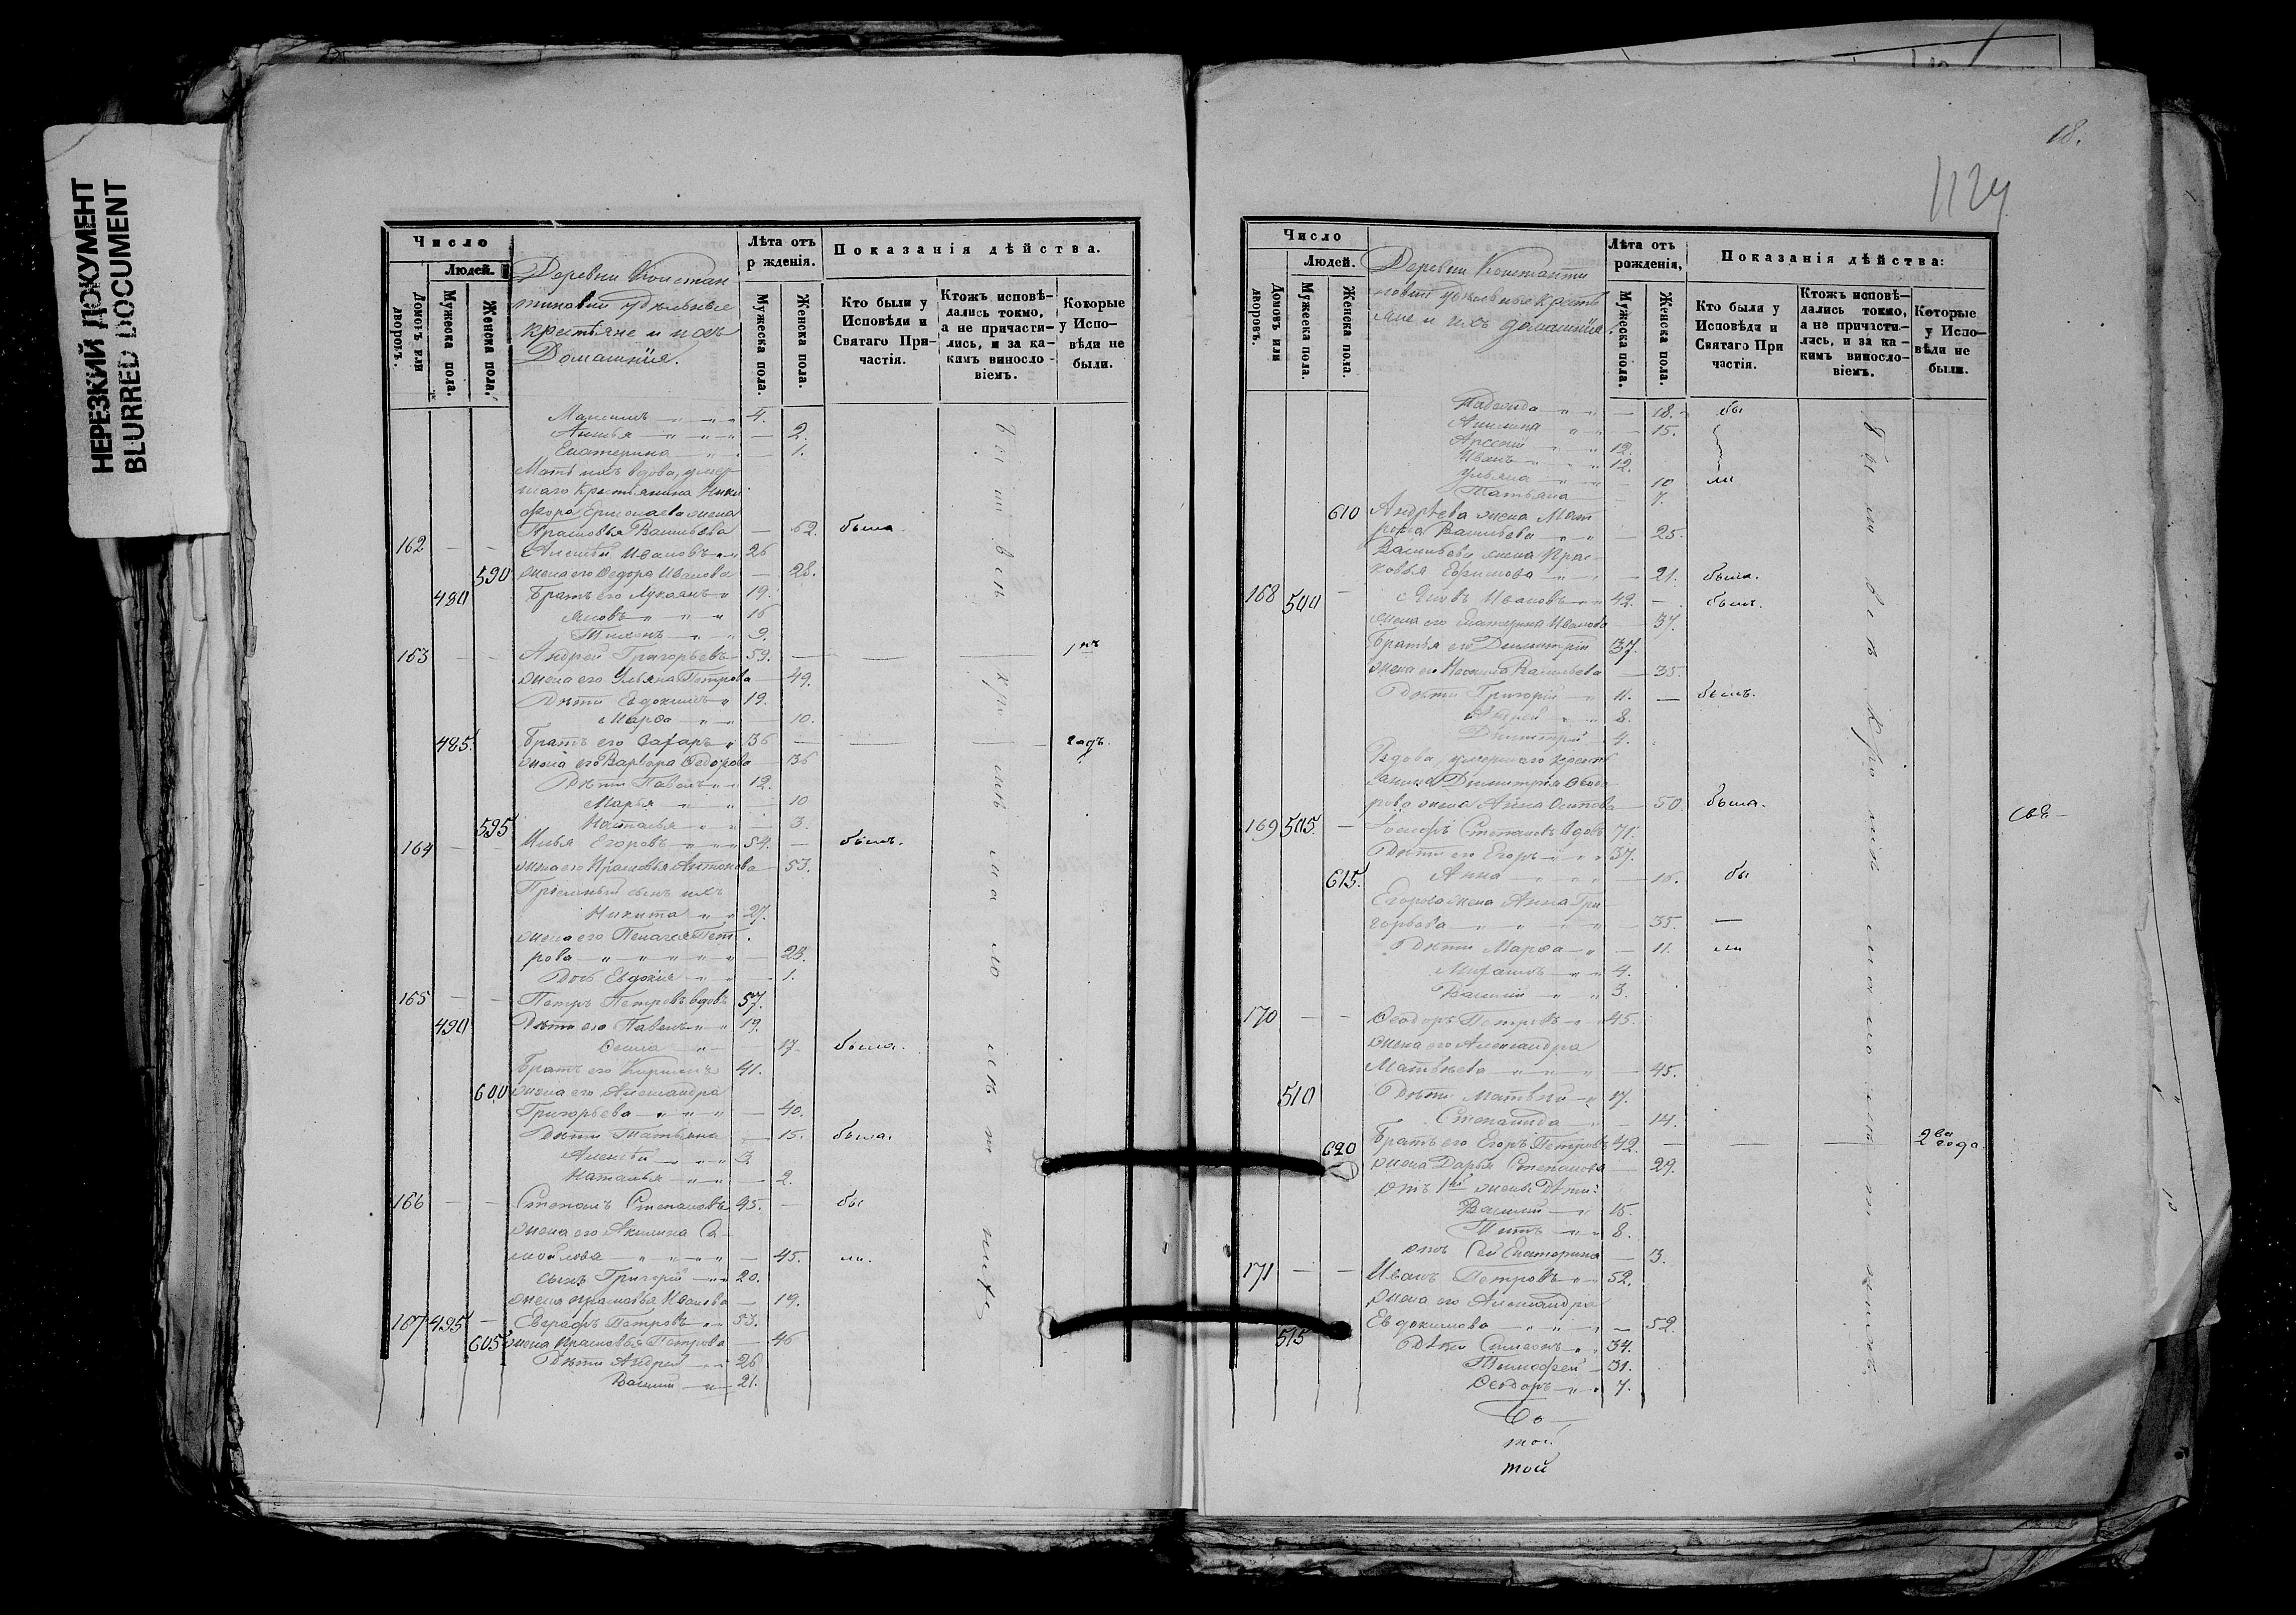 НЕРЕЗКИЙ ДОКУМЕНТ
BLURRED DOCUMENT
Число
Людей.
Домовъ или дворовъ.
Мужеска пола.
Женска пола.
Деревни Констан
тиновки удѣльные
крестьяне и ихъ
Домашнія.
Лѣта отъ
р ждения.
Мужеска пола.
Женска пола.
Показанія дѣйства.
Кто были у
Исповѣди и
Святаго При-
частія.
Ктожъ исповѣ-
дались токмо,
а не причасти-
лись, и за ка-
кимъ винosло-
віемъ.
Которые
у Испо-
вѣди не
были.
Максимъ 4.
2.
Екатерина 1.
Мать ихъ вдова, умер
шаго крестьянина Ники
фора Ермолаева жена
Прасковья Васильева 62. была.
162 Алексѣй Ивановъ 26
590 жена его Федора Иванова 28.
480 Братъ его Лукьянъ 19.
Яковъ 16
Тихонъ 9.
163 Андрей Григорьевъ 59. 1нъ
жена его Ульяна Петрова 49.
Дѣти Евдокимъ 19.
Марфа 10.
485. Братъ его Захаръ 36 годъ.
жена его Варвара Федорова 36
Дѣти Павелъ 12.
Марья 10
595 Наталья 3.
164 Илья Егоровъ 54. былъ.
жена его Прасковья Антонова 53.
Пріемный сынъ ихъ
Никита 27.
жена его Пелагея Пет
рова 23.
Дочь Евдокія 1.
165 Петръ Петровъ вдовъ 57.
490 Дѣти его Павелъ 19.
17. была.
Братъ его Кириллъ 41.
600 жена его Александра
Григорьева 40.
Дѣти Татьяна 15. была.
Алексѣй 3
Наталья 2.
166 Степанъ Степановъ 45. бы
жена его Акилина Са-
мойлова 45. ли.
сынъ Григорій 20.
жена Прасковья Иванова 19.
167 495 Евграфъ Петровъ 53.
605 жена Прасковья Петрова 46
Дѣти Андрей 26
Василій 21.
18.
1124
Число
Людей.
Домовъ или дворовъ.
Мужеска пола.
Женска пола.
Деревни Константи
новки удѣльные кресть
яне и ихъ домашнія
Лѣта отъ
рожденія,
Мужеска пола.
Женска пола.
Показанія дѣйства:
Кто были у
Исповѣди и
Святаго При
частія.
Ктожъ исповѣ-
дались токмо,
а не причасти-
лись, и за ка-
кимъ винosло-
віемъ.
Которые
у Испо-
вѣди не
были.
Надежда 18. бы
Акилина 15.
Арсеній 12.
Иванъ 12.
Ульяна 10 ли
Татьяна 7.
610 Андрѣева жена Мат
рона Васильева 25.
Васильева жена Прас-
ковья Ефимова 21. была.
168 500 Яковъ Ивановъ 42. былъ.
жена его Екатерина Иванова 37.
Братья его Димитрій 37.
жена его Васильева 35.
Дѣти Григорій 11. былъ.
Андрей 8.
Димитрій 4.
Вдова, умершаго кресть
янина Димитрія Ѳеодо
рова жена Анна Осипова 50. была.
169 505. Іосифъ Степановъ вдовъ 71.
Дѣти его Егоръ 37.
615. Анна 16. бы
Егорова жена Анна Гри
горьева 35.
Дѣти Марфа 11. ли
4.
Василій 3.
170 Ѳеодоръ Петровъ 45.
жена его Александра
Матвѣева 45.
510 Дѣти Матвѣй 17.
Степанида 14.
620 Братъ его Егоръ Петровъ 42. 2ва года
жена Дарья Степанова 29.
отъ 1й жены дѣти:
Василій 15.
Петръ 8.
отъ сей Екатерина 3.
171 Иванъ Петровъ 52.
жена его Александра
Евдокимова 52.
515 Дѣти Симеонъ 34.
Тимофей 31.
Ѳеодоръ 7.
той